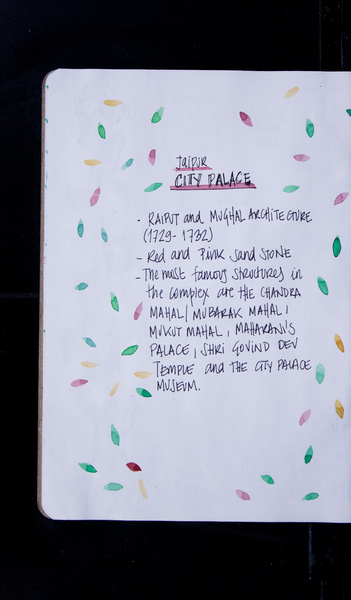 Jaipur
CITY PALACE
- RAJPUT and MUGHAL ARCHITECTURE
(1729-1732)
- Red and Pink Sand STONE
- The most famous structures in
the complex are THE CHANDRA
MAHAL, MUBARAK MAHAL,
MUKUT MAHAL, MAHARANI'S
PALACE, SHRI GOVIND DEV
TEMPLE and THE CITY PALACE
MUSEUM.